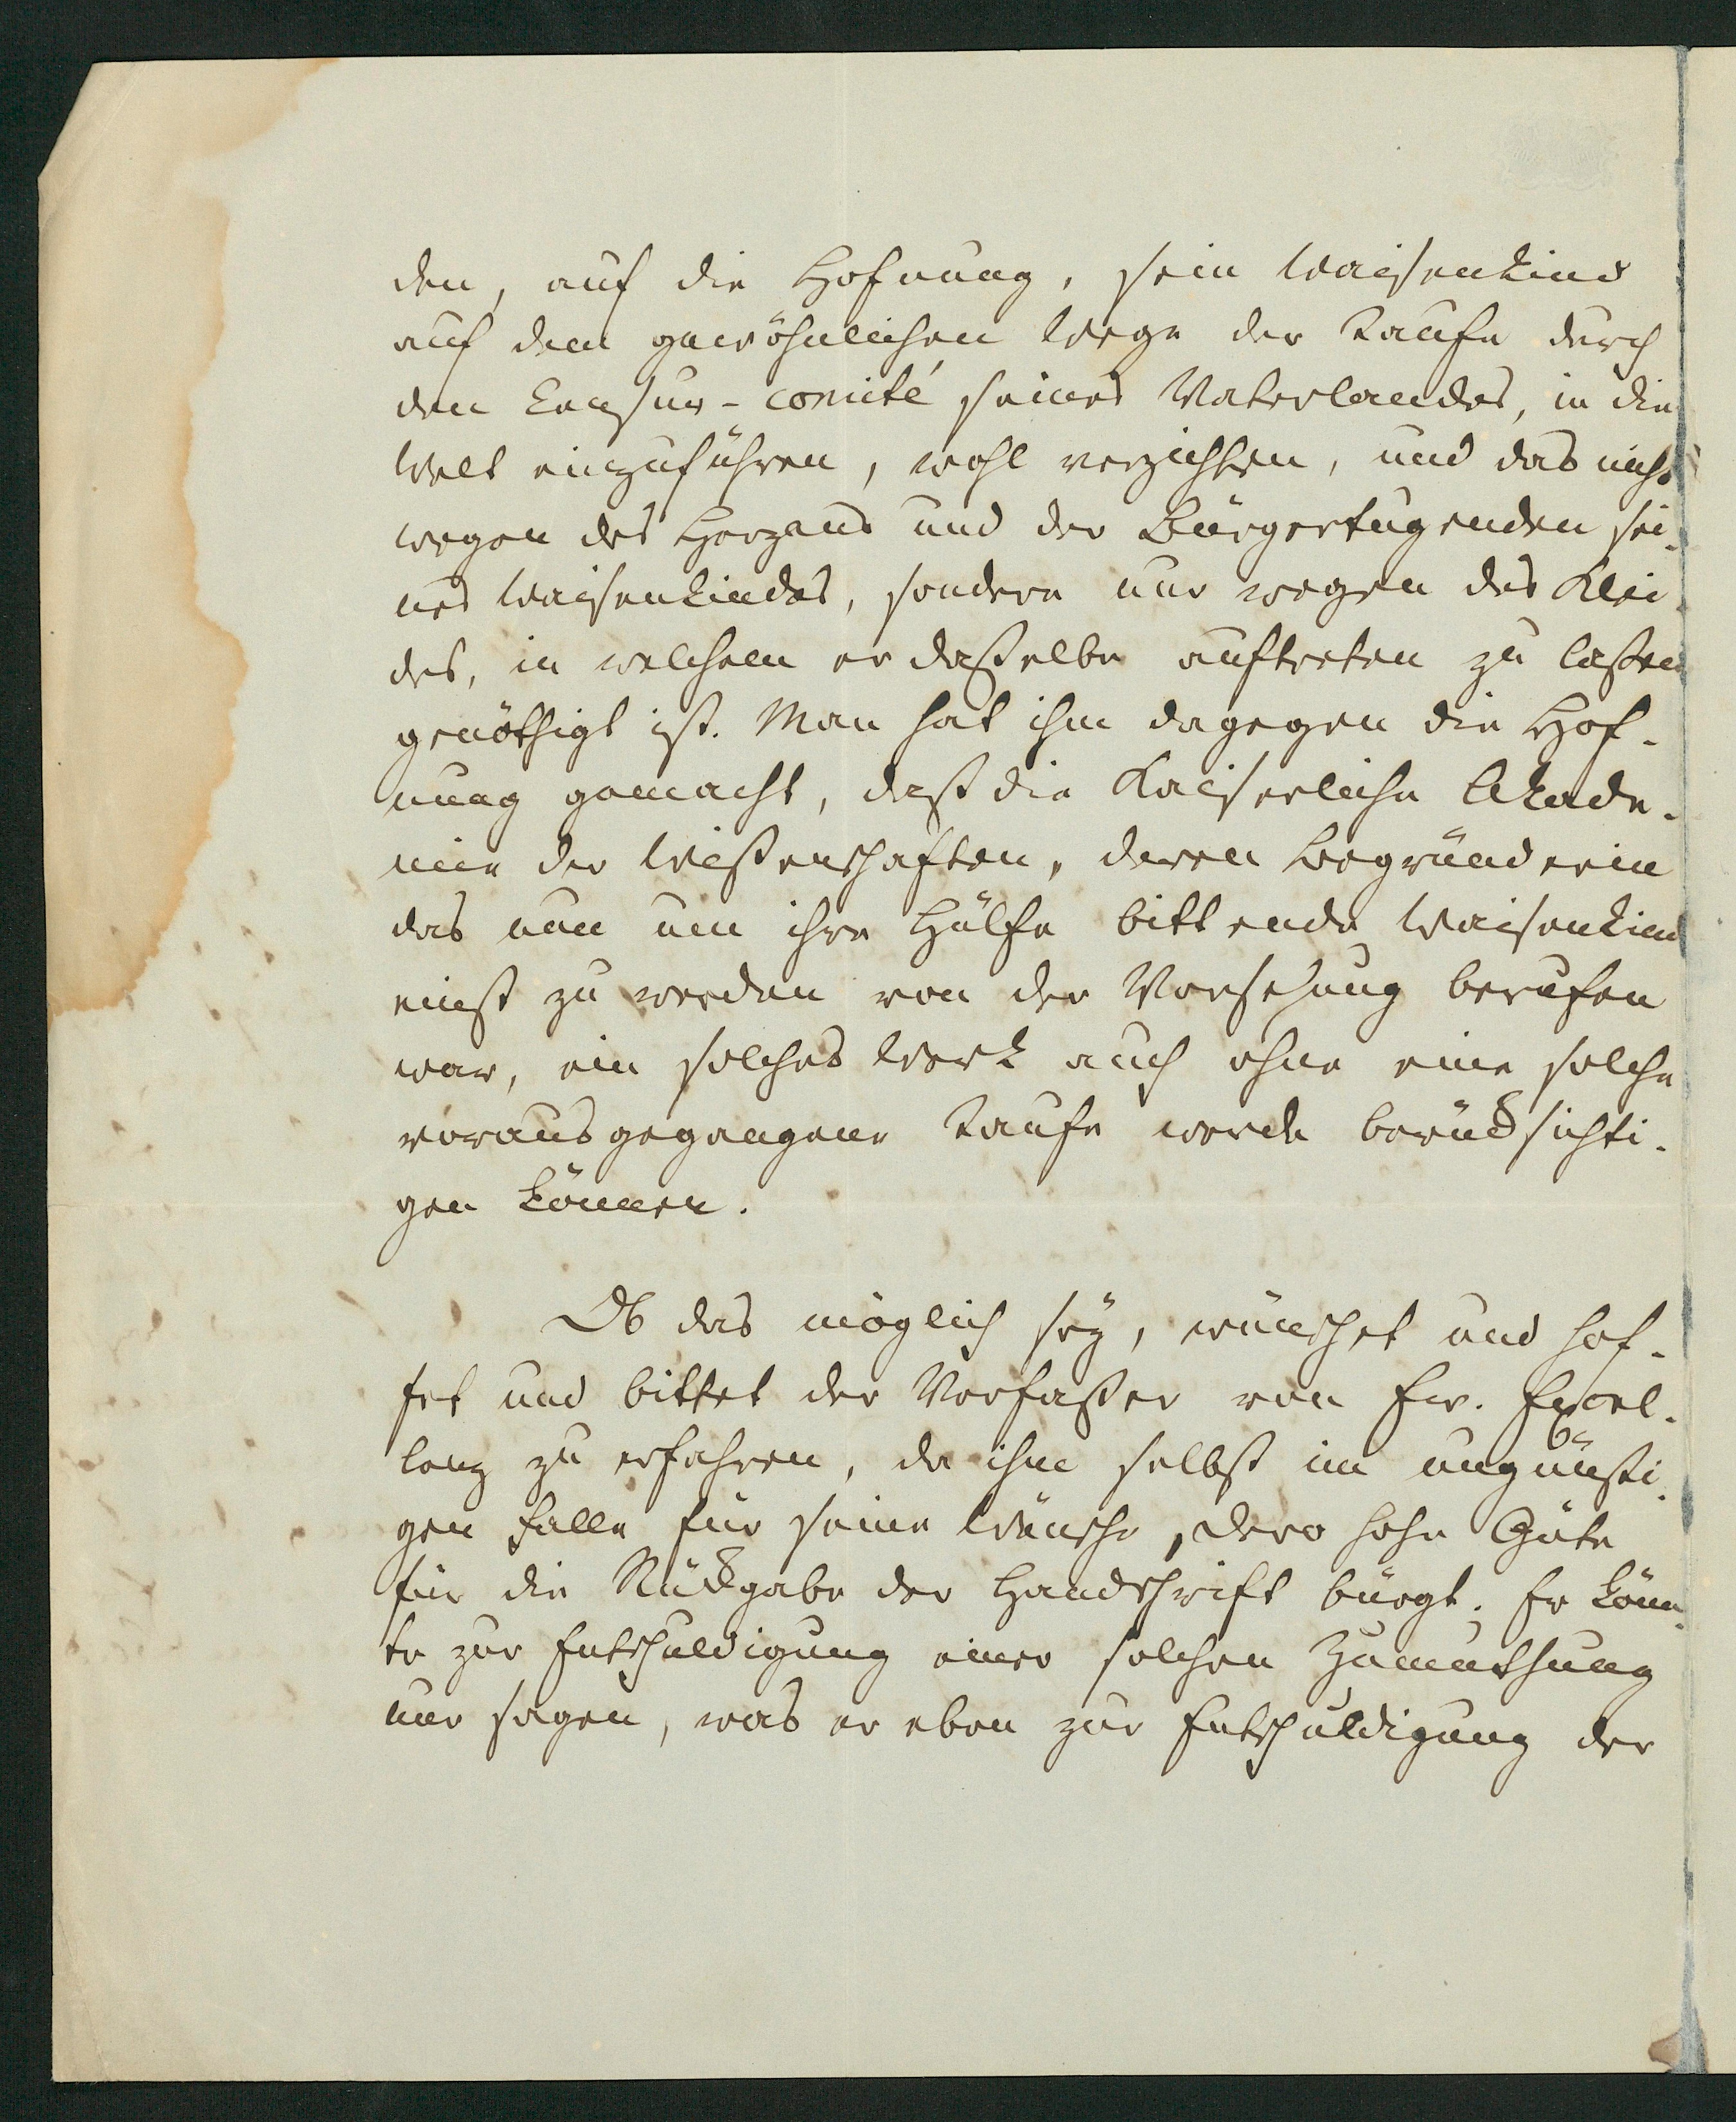 den, auf die Hofnung, sein Waisenkind
auf dem gewöhnlichen Wege der Taufe durch
den Censur-comité seines Vaterlandes, in die
Welt einzuführen, wohl verzichten, und das nicht
wegen des Herzens und der Bürgertugenden sei-
nes Waisenkindes, sondern nur wegen des Klei-
des, in welchem er daßelbe auftreten zu laßen
genöthigt ist. Man hat ihm dagegen die Hof-
nung gemacht, daß die Kaiserliche Akade-
mie der Wißenschaften, deren Begründerin
das nun um ihre Hülfe bittende Waisenkind
einst zu werden von der Vorsehung berufen
war, ein solches Werk auch ohne eine solche
vorausgegangene Taufe werde berücksichti-
gen können.
Ob das möglich sey, wünschet und hof-
fet und bittet der Verfaßer von Ew. Excel-
lenz zu erfahren, da ihm selbst im ungünsti-
gen Falle für seine Wünsche, dero hohe Güte
für die Rückgabe der Handschrift bürgt. Er könn-
te zur Entschuldigung einer solchen Zumuthung
nur sagen, was er eben zur Entschuldigung der